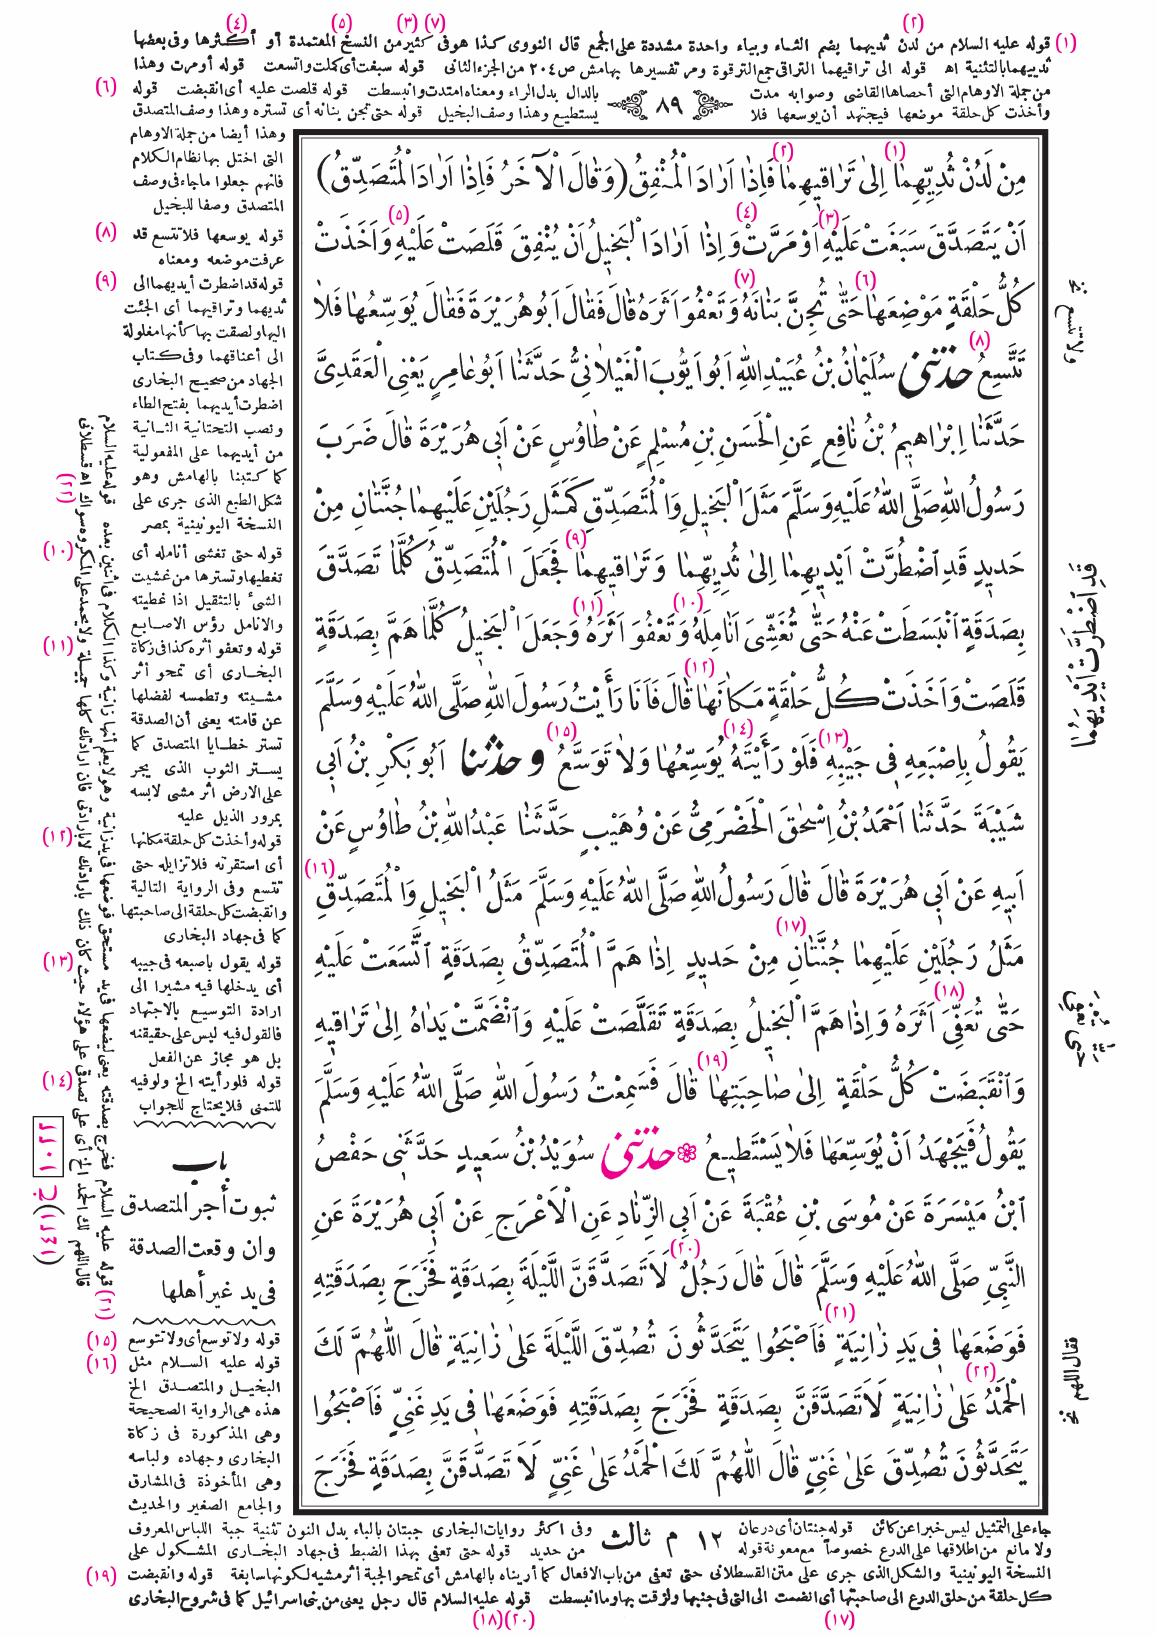 (١) قوله عليه السلام من لدن ثديهما بضم الثاء وبياء واحدة مشددة على الجمع قال النووى كذا هو فى كثير من النسخ المعتمدة أو أكثرها وفى بعضها
ثدييهما بالتثنية اه قوله الى تراقيهما التراقى جمع الترقوة ومر تفسيرها بهامش ص ٢٠٤ من الجزء الثانى قوله سبغت أى كملت واتسعت قوله أو مرت وهذا
من جملة الاوهام التى أحصاها القاضى وصوابه مدت بالدال بدل الراء ومعناه امتدت وانبسطت قوله قلصت عليه أى انقبضت قوله
وأخذت كل حلقة موضعها فيجتهد أن يوسعها فلا يستطيع وهذا وصف البخيل قوله حتى تجن بنانه أى تستره وهذا وصف المتصدق
٨٩
مِنْ لَدُنْ ثُدِيِّهِمَا إِلىٰ تَرَاقِيهِمَا فَإِذَا اَرَادَ الْمُنْفِقُ (وَقَالَ الْآخَرُ فَإِذَا اَرَادَ الْمُتَصَدِّقُ)
اَنْ يَتَصَدَّقَ سَبَغَتْ عَلَيْهِ اَوْ مَرَّتْ وَاِذَا اَرَادَ الْبَخِيلُ اَنْ يُنْفِقَ قَلَصَتْ عَلَيْهِ وَاَخَذَتْ
كُلُّ حَلْقَةٍ مَوْضِعَهَا حَتّٰى تُجِنَّ بَنَانَهُ وَتَعْفُوَ اَثَرَهُ قَالَ فَقَالَ اَبُو هُرَيْرَةَ فَقَالَ يُوَسِّعُهَا فَلَا
تَتَّسِعُ حدثنى سُلَيْمَانُ بْنُ عُبَيْدِ اللهِ اَبُو اَيُّوبَ الْغَيْلَانِيُّ حَدَّثَنَا اَبُو عَامِرٍ يَعْنِى الْعَقَدِىَّ
حَدَّثَنَا اِبْرَاهِيمُ بْنُ نَافِعٍ عَنِ الْحَسَنِ بْنِ مُسْلِمٍ عَنْ طَاوُسٍ عَنْ اَبِى هُرَيْرَةَ قَالَ ضَرَبَ
رَسُولُ اللهِ صَلَّى اللهُ عَلَيْهِ وَسَلَّمَ مَثَلَ الْبَخِيلِ وَالْمُتَصَدِّقِ كَمَثَلِ رَجُلَيْنِ عَلَيْهِمَا جُنَّتَانِ مِنْ
حَدِيدٍ قَدِ اضْطُرَّتْ اَيْدِيهِمَا اِلىٰ ثُدِيِّهِمَا وَتَرَاقِيهِمَا فَجَعَلَ الْمُتَصَدِّقُ كُلَّمَا تَصَدَّقَ
بِصَدَقَةٍ انْبَسَطَتْ عَنْهُ حَتّٰى تُغَشِّىَ اَنَامِلَهُ وَتَعْفُوَ اَثَرَهُ وَجَعَلَ الْبَخِيلُ كُلَّمَا هَمَّ بِصَدَقَةٍ
قَلَصَتْ وَاَخَذَتْ كُلُّ حَلْقَةٍ مَكَانَهَا قَالَ فَاَنَا رَأَيْتُ رَسُولَ اللهِ صَلَّى اللهُ عَلَيْهِ وَسَلَّمَ
يَقُولُ بِاِصْبَعِهِ فِى جَيْبِهِ فَلَوْ رَأَيْتَهُ يُوَسِّعُهَا وَلَا تَوَسَّعُ وحدثنا اَبُو بَكْرِ بْنُ اَبِى
شَيْبَةَ حَدَّثَنَا اَحْمَدُ بْنُ اِسْحٰقَ الْحَضْرَمِىُّ عَنْ وُهَيْبٍ حَدَّثَنَا عَبْدُ اللهِ بْنُ طَاوُسٍ عَنْ
اَبِيهِ عَنْ اَبِى هُرَيْرَةَ قَالَ قَالَ رَسُولُ اللهِ صَلَّى اللهُ عَلَيْهِ وَسَلَّمَ مَثَلُ الْبَخِيلِ وَالْمُتَصَدِّقِ
مَثَلُ رَجُلَيْنِ عَلَيْهِمَا جُنَّتَانِ مِنْ حَدِيدٍ اِذَا هَمَّ الْمُتَصَدِّقُ بِصَدَقَةٍ اتَّسَعَتْ عَلَيْهِ
حَتّٰى تُعَفِّىَ اَثَرَهُ وَاِذَا هَمَّ الْبَخِيلُ بِصَدَقَةٍ تَقَلَّصَتْ عَلَيْهِ وَانْضَمَّتْ يَدَاهُ اِلىٰ تَرَاقِيهِ
وَانْقَبَضَتْ كُلُّ حَلْقَةٍ اِلىٰ صَاحِبَتِهَا قَالَ فَسَمِعْتُ رَسُولَ اللهِ صَلَّى اللهُ عَلَيْهِ وَسَلَّمَ
يَقُولُ فَيَجْهَدُ اَنْ يُوَسِّعَهَا فَلَا يَسْتَطِيعُ حدثنى سُوَيْدُ بْنُ سَعِيدٍ حَدَّثَنِى حَفْصُ
ابْنُ مَيْسَرَةَ عَنْ مُوسَى بْنِ عُقْبَةَ عَنْ اَبِى الزِّنَادِ عَنِ الْاَعْرَجِ عَنْ اَبِى هُرَيْرَةَ عَنِ
النَّبِىِّ صَلَّى اللهُ عَلَيْهِ وَسَلَّمَ قَالَ قَالَ رَجُلٌ لَاَتَصَدَّقَنَّ اللَّيْلَةَ بِصَدَقَةٍ فَخَرَجَ بِصَدَقَتِهِ
فَوَضَعَهَا فِى يَدِ زَانِيَةٍ فَاَصْبَحُوا يَتَحَدَّثُونَ تُصُدِّقَ اللَّيْلَةَ عَلىٰ زَانِيَةٍ قَالَ اللّٰهُمَّ لَكَ
الْحَمْدُ عَلىٰ زَانِيَةٍ لَاَتَصَدَّقَنَّ بِصَدَقَةٍ فَخَرَجَ بِصَدَقَتِهِ فَوَضَعَهَا فِى يَدِ غَنِىٍّ فَاَصْبَحُوا
يَتَحَدَّثُونَ تُصُدِّقَ عَلىٰ غَنِىٍّ قَالَ اللّٰهُمَّ لَكَ الْحَمْدُ عَلىٰ غَنِىٍّ لَاَتَصَدَّقَنَّ بِصَدَقَةٍ فَخَرَجَ
ولا تتسع نخ
قَدِ اضْطَرَّتْ اَيْدِيَهُمَا
حتى تعفى
فقال اللهم نخ
وهذا أيضا من جملة الاوهام
التى اختل بها نظام الكلام
فانهم جعلوا ماجاء فى وصف
المتصدق وصفا للبخيل
(٨) قوله يوسعها فلا تتسع قد
عرفت موضعه ومعناه
(٩) قوله قد اضطرت أيديهما الى
ثديهما وتراقيهما أى الجئت
اليها ولصقت بها كأنها مغلولة
الى أعناقهما وفى كتاب
الجهاد من صحيح البخارى
اضطرت أيديهما بفتح الطاء
ونصب التحتانية الثانية
من أيديهما على المفعولية
كما كتبنا بالهامش وهو
شكل الطبع الذى جرى على
النسخة اليونينية بمصر
(١٠) قوله حتى تغشى أنامله أى
تغطيها وتسترها من غشيت
الشئ بالتثقيل اذا غطيته
والانامل رؤس الاصابع
(١١) قوله وتعفو أثره كذا فى زكاة
البخارى أى تمحو أثر
مشيته وتطمسه لفضلها
عن قامته يعنى أن الصدقة
تستر خطايا المتصدق كما
يستر الثوب الذى يجر
على الارض أثر مشى لابسه
بمرور الذيل عليه
(١٢) قوله وأخذت كل حلقة مكانها
أى استقرته فلا تزايله حتى
تتسع وفى الرواية التالية
وانقبضت كل حلقة الى صاحبتها
كما فى جهاد البخارى
(١٣) قوله يقول باصبعه فى جيبه
أى يدخلها فيه مشيرا الى
ارادة التوسيع بالاجتهاد
فالقول فيه ليس على حقيقته
بل هو مجاز عن الفعل
(١٤) قوله فلو رأيته الخ ولو فيه
للتمنى فلا يحتاج للجواب
باب
ثبوت أجر المتصدق
وان وقعت الصدقة
فى يد غير أهلها
(١٥) قوله ولا توسع أى ولا تتوسع
(١٦) قوله عليه السلام مثل
البخيل والمتصدق الخ
هذه هى الرواية الصحيحة
وهى المذكورة فى زكاة
البخارى وجهاده ولباسه
وهى المأخوذة فى المشارق
والجامع الصغير والحديث
جاء على التمثيل ليس خبرا عن كائن قوله جنتان أى درعان وفى اكثر روايات البخارى جبتان بالباء بدل النون تثنية جبة اللباس المعروف
ولا مانع من اطلاقها على الدرع خصوصاً مع معونة قوله من حديد قوله حتى تعفى بهذا الضبط فى جهاد البخارى المشكول على
١٢ م ثالث
النسخة اليونينية والشكل الذى جرى على متن القسطلانى حتى تعفى من باب الافعال كما أريناه بالهامش أى تمحو الجبة أثر مشيه لكونها سابغة قوله وانقبضت (١٩)
كل حلقة من حلق الدرع الى صاحبتها أى انضمت الى التى فى جنبها ولزقت بها وما انبسطت قوله عليه السلام قال رجل يعنى من بنى اسرائيل كما فى شروح البخارى
(١٧) (٢٠)(١٨)
(٢١) قوله عليه السلام فخرج بصدقته يعنى ليضعها فى يد مستحق فوضعها فى يد زانية وهو لا يعلم أنها زانية وكذا الكلام فى اثنين بعده قوله عليه السلام
قال اللهم لك الحمد الخ أى على تصدقى على هؤلاء حيث كان ذلك بارادتك لا بارادتى فان ارادتك كلها جميلة ولا يحمد على المكروه سواك اه قسطلانى (٢٢)